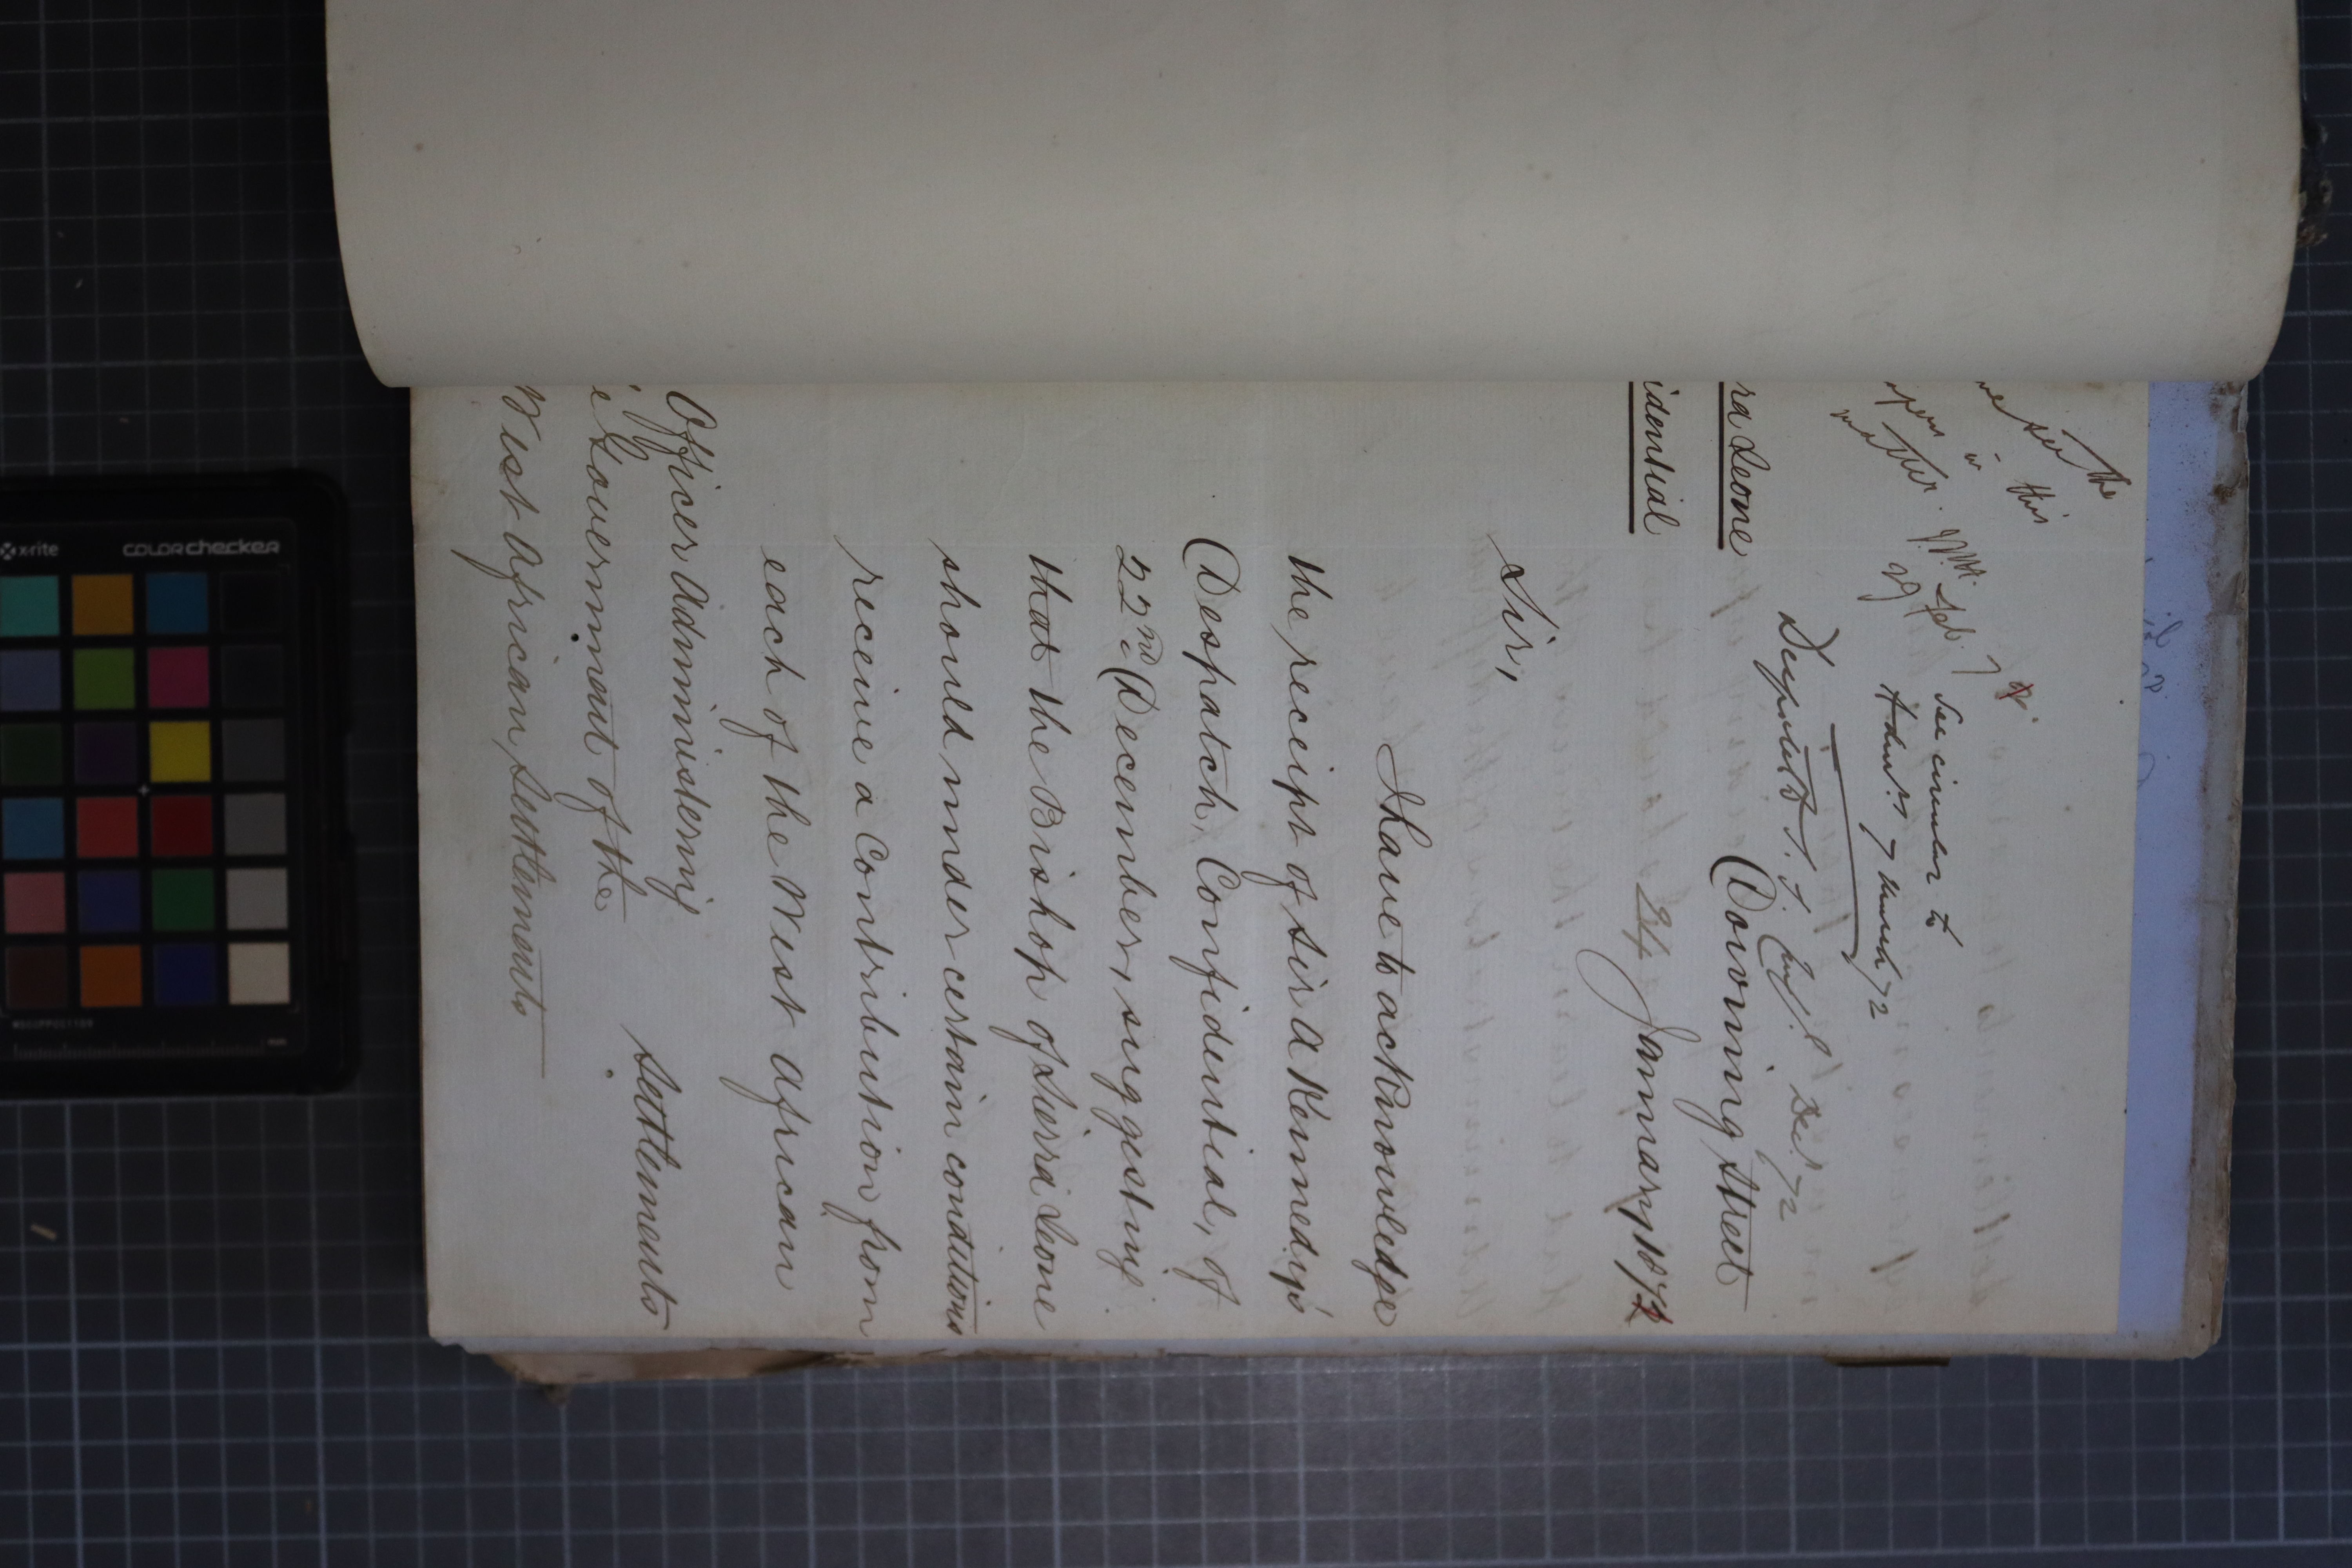 see the
in this
matter.
See circular to
7 March/72
Downing Street
ra Leone
24 January 1872
idential
Sir,
I have to acknowledge
the receipt of Sir A Kennedy's
Despatch, Confidential, of
22nd December, suggesting
that the Bishop of Sierra Leone
should under certain conditions
receive a contribution from
each of the West African
Settlements
Officer Administering
e Government of the
West African Settlements
x-rite
COLORchecker
mm